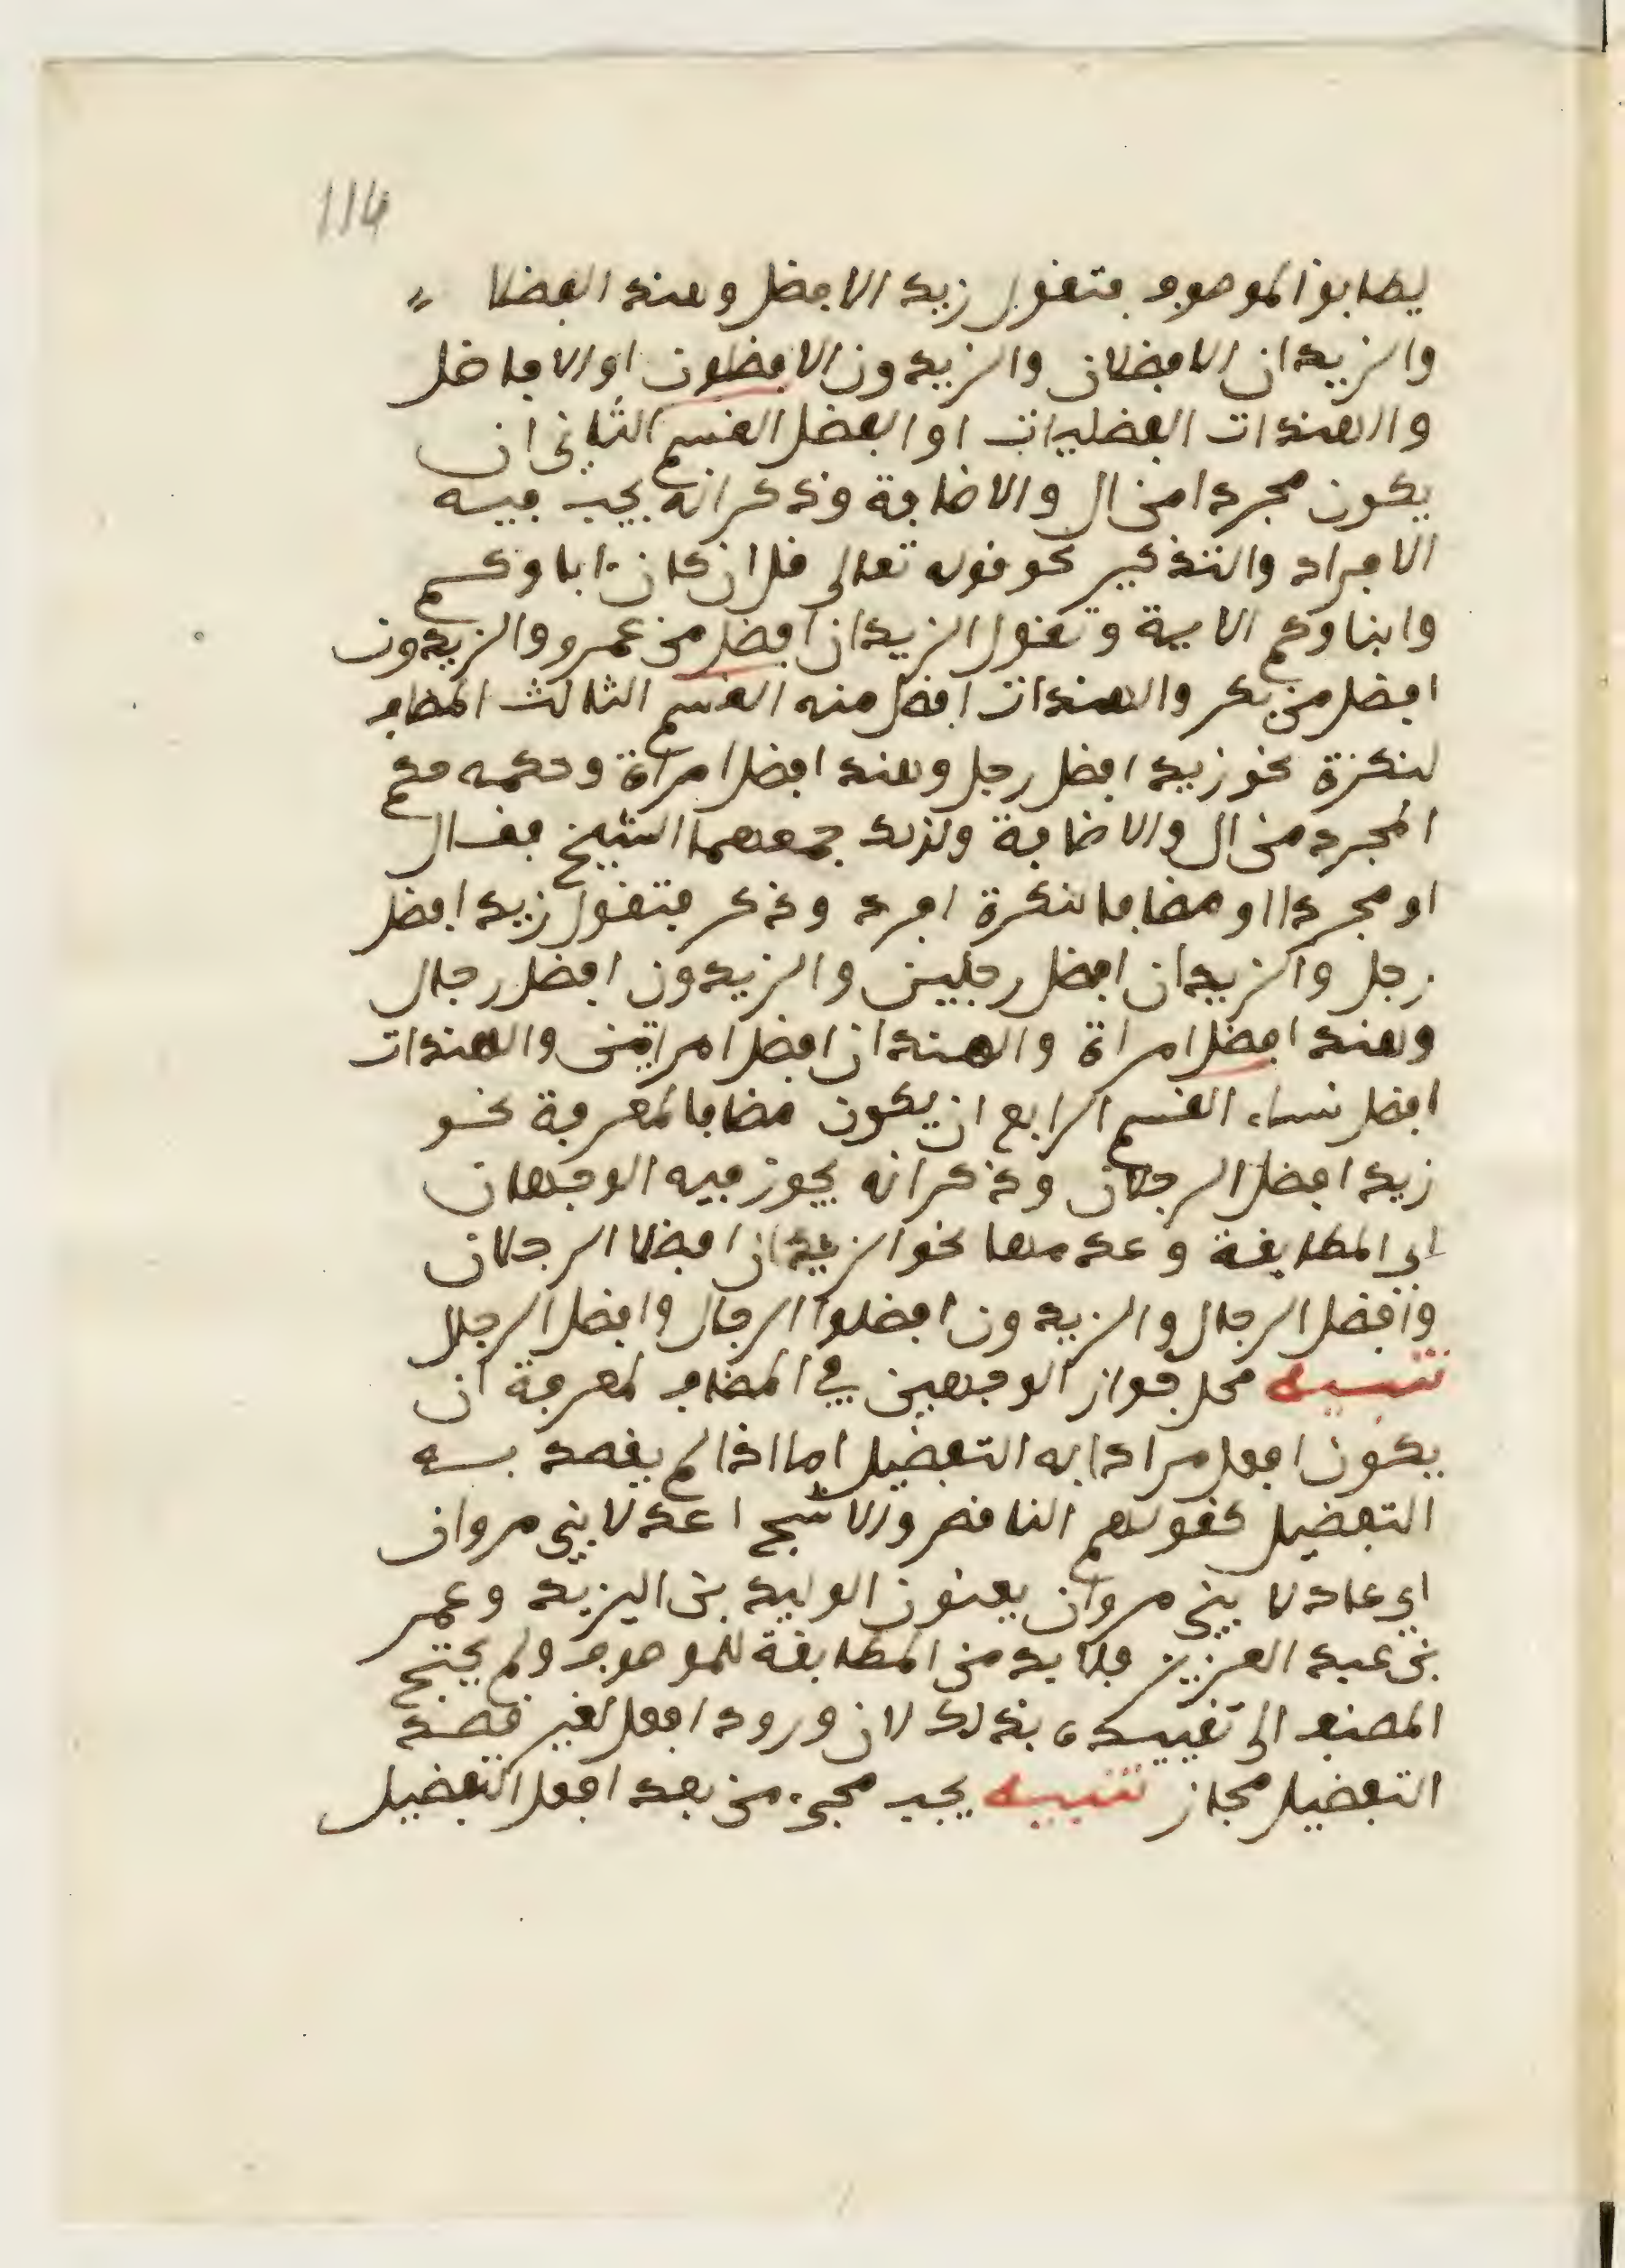 114
يطابق الموصوف فتقول زيد الافضل وهند الفضلا
والزيدان الافضلان والزيدون الافضلون او الافاضل
والهندات الفضليات او الفضل القسم الثاني ان
يكون مجردا من ال والاضافة وذكر انه يجب فيه
الافراد والتذكير نحو قوله تعالى قل ان كان ءاباوكم
وابناوكم الاية وتقول الزيدان افضل من عمرو والزيدون
افضل من بكر والهندات افضل منه القسم الثالث المضاف
لنكرة نحو زيد افضل رجل وهند افضل امراة وحكمه مع
المجرد من ال والاضافة ولذلك جمعهما الشيخ فقال
او مجردا او مضافا لنكرة افرد وذكر فتقول زيد افضل
رجل والزيدان افضل رجلين والزيدون افضل رجال
وهند افضل امراة والهندان افضل امراتين والهندات
افضل نساء القسم الرابع ان يكون مضافا لمعرفة نحو
زيد افضل الرجلان وذكر انه يجوز فيه الوجهان
اي المطابقة وعدمها نحو الزيدان افضلا الرجلان
وافضل الرجال والزيدون افضلوا الرجال وافضل الرجال
تنبيه محل جواز الوجهين في المضاف لمعرفة ان
يكون افعل مرادا به التفضيل اما اذا لم يقصد به
التفضيل كقولهم الناقص والاشج اعدلا بني مروان
اي عادلا بني مروان يعنون الوليد بن اليزيد وعمر
بن عبد العزيز فلا بد من المطابقة للموصوف ولم يحتج
المصنف الى تقييده بذلك لان ورود افعل لغير قصد
التفضيل مجاز تنبيه يجب مجيء من بعد افعل التفضيل